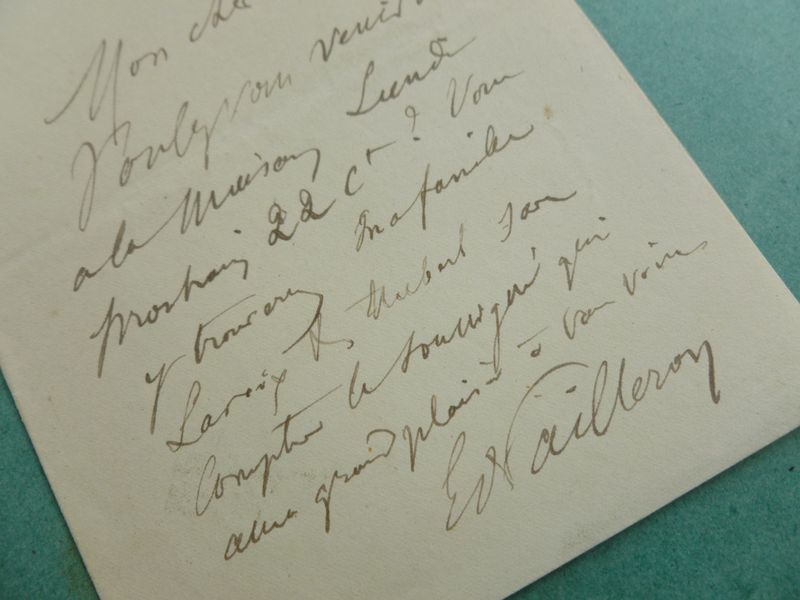 Mon che
Voulez vous venir
a la Maison Lundi
prochain 22 ct ? Vous
y trouverez ma famille
Lacroix & Hubert sans
compter le soussigné qui
aura grand plaisir à vous voir
Ed Pailleron